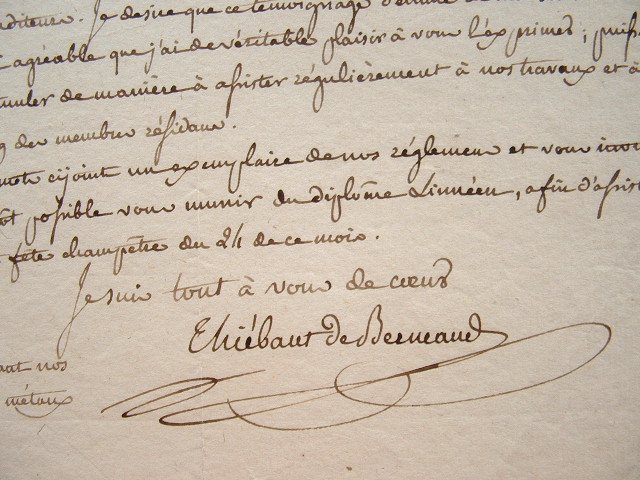 auditeurs. Je desire que ce témoignage d'estime
agréable que j'ai de véritable plaisir à vous l'exprimer, puiss
de manière à assister régulièrement à nos travaux et à
des membres résidans.
cijoint un exemplaire de nos réglemens et vous
possible vous munir du diplôme Linnéen, afin d'assist
fête champêtre du 24 de ce mois.
Je suis tout à vous de cœur
Thiébaut de Berneaud
ant nos
métaux